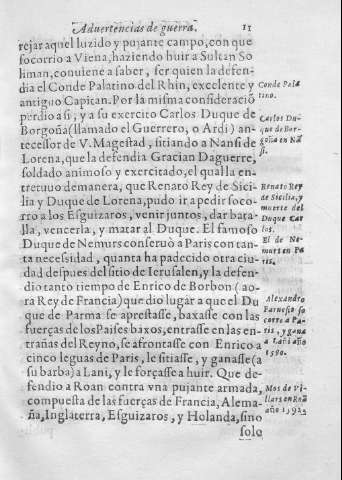 Aduertencias de guerra. 11
rejar aquel luzido y pujante campo, con que
socorrio a Viena, haziendo huir a Sultan So
liman, conuiene a saber, ser quien la defen-
dia el Conde Palatino del Rhin, excelente y
antiguo Capitan. Por la misma consideració
perdio a si, y a su exercito Carlos Duque de
Borgoña (llamado el Guerrero, o Ardi) an-
tecessor de V. Magestad, sitiando a Nansi de
Lorena, que la defendia Gracian Daguerre,
soldado animoso y exercitado, el qual la en-
tretuuo de manera, que Renato Rey de Sici-
lia y Duque de Lorena, pudo ir a pedir soco-
rro a los Esguizaros, venir juntos, dar bata-
lla, vencerla, y matar al Duque. El famoso
Duque de Nemurs conseruò a Paris con tan-
ta necessidad, quanta ha padecido otra ciu-
dad despues del sitio de Ierusalen, y la defen-
dio tanto tiempo de Enrico de Borbon (ao-
ra Rey de Francia) que dio lugar a que el Du
que de Parma se aprestasse, baxasse con las
fuerças de los Paises baxos, entrasse en las en-
trañas del Reyno, se afrontasse con Enrico a
cinco leguas de Paris, le sitiasse, y ganasse (a
su barba) a Lani, y le forçasse a huir. Que de-
fendio a Roan contra vna pujante armada,
compuesta de las fuerças de Francia, Alema-
ña, Inglaterra, Esguizaros, y Holanda, sino
solo
Conde Pala
tino.
Carlos Du-
que de Bor-
goña en Nã
si.
Renato Rey
de Sicilia, y
muerte del
Duque Car
los.
El de Ne-
murs en Pa
ris.
Alexandro
Farnesio so
corre a Pa-
ris, y gana
a Lañi año
1590.
Mos de Vi-
llars en Roã
año 1592.